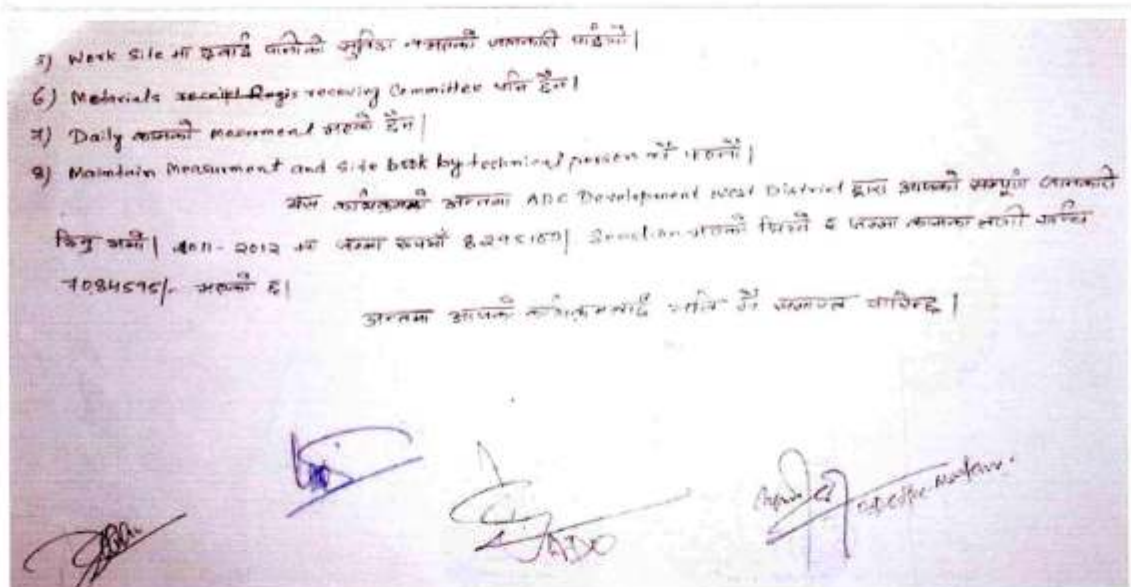 5) Work Site मा छनाई पानीको सुविधा नभएको जानकारी पाईयो|
6) Meterials receipt Regis receving Committee पनि छैन|
7) Daily कामको mesurment भएको छैन|
8) Maintain measurment and side book by technical person ले
यस कार्यक्रमको अन्तमा ADC Development West District द्वारा आजको सम्पूर्ण जानकारी
दिनु भयो| 2011-2012 मा जम्मा रूपयाँ Sanction भएको थियो र जम्मा कामका लागी खर्च
7084595/- भएको छ|
अन्तमा आजको कार्यक्रमलाई यति नै समाप्त गरिन्छ|
ADO